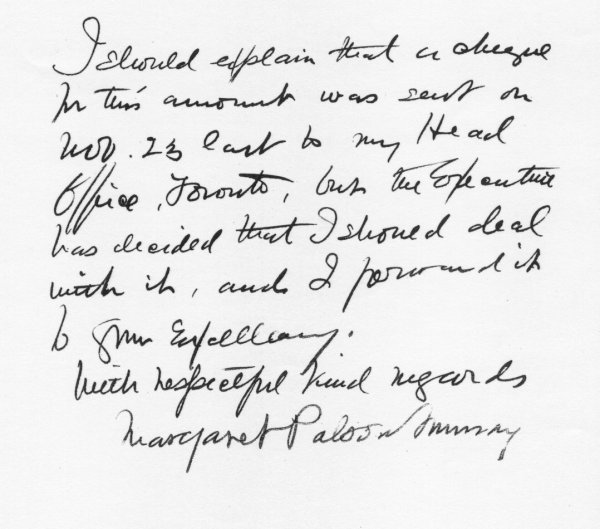 I should explain that a cheque
for this amount was sent on
Nov. 23 last to my Head
Office, Toronto, but the Executive
has decided that I should deal
with it, and I forward it
to Your Excellency.
With respectful kind regards
Margaret Murray